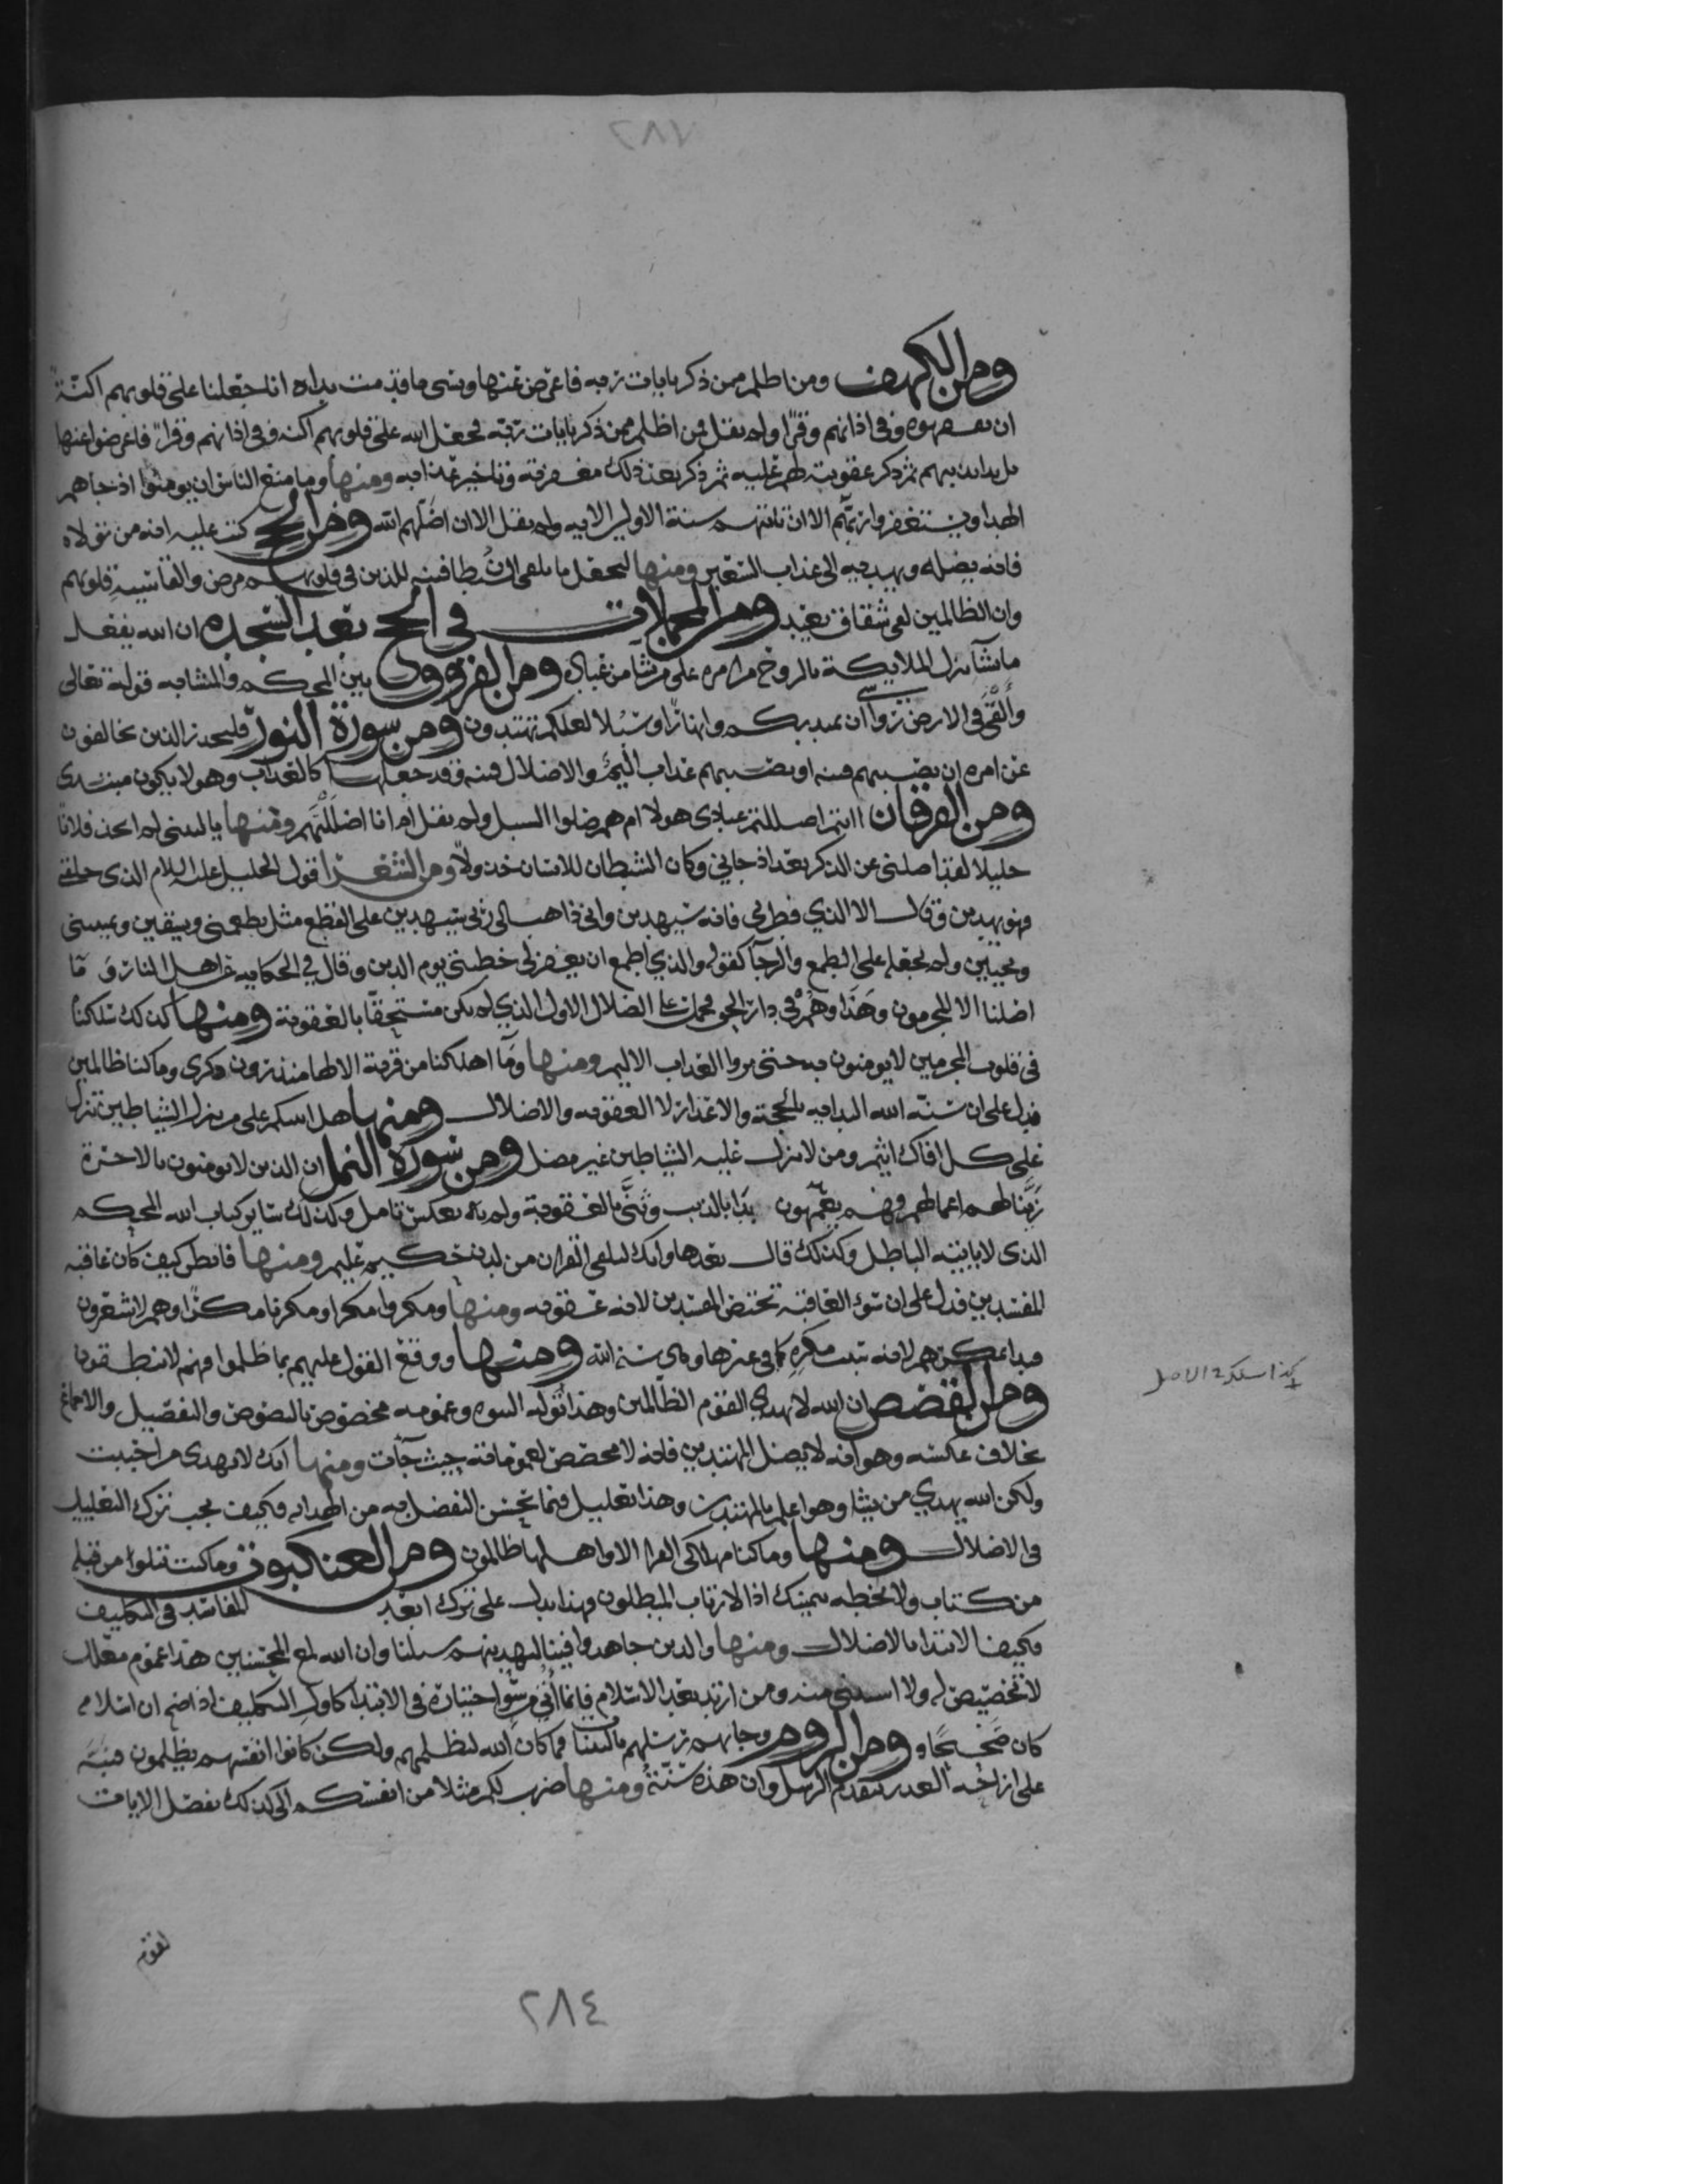 ٢٨٧
ومن الكهف ومن اظلم ممن ذكر بايات ربه فاعرض عنها ونسى ما قدمت يداه انا جعلنا على قلوبهم اكنّة
ان يفقهوه وفى اذانهم وقرًا ولم يقل من اظلم ممن ذكر بايات ربّه فجعل الله على قلوبهم اكنه وفى اذانهم وقرا فاعرضوا عنها
بل بدا بذنبهم ثم ذكر عقوبته لهم عليه ثم ذكر بعد ذلك مغفرته وتاخير عذابه ومنها وما منع الناس ان يومنوا اذ جاهم
الهدا ويستغفروا ربّهم الا ان تاتيهم سنة الاولين الايه ولم يقل الا ان اضلّهم الله ومن الحج كتب عليه انه من تولاه
فانه يضله ويهديه الى عذاب السّعير ومنها ليجعل ما يلقى الشيطان فتنه للذين فى قلوبهم مرض والقاسية قلوبهم
وان الظالمين لفى شقاق بعيد ومن المجملات فى الحج بعد السّجده ان الله يفعل
ما يشآ ينزل الملايكة بالروح من امره على من يشا من عباده ومن الفروق بين المحكم والمتشابه قوله تعالى
وألقى فى الارض رواسى ان تميد بكم وانهارًا وسُبلا لعلكم تهتدون ومن سورة النور فليحذر الذين يخالفون
عن امره ان تصيبهم فتنه او يصيبهم عذاب اليم والاضلال فتنه وقد جعلها كالعذاب وهو لا يكون مبتدى
ومن الفرقان اانتم اضللتم عبادى هولا ام هم ضلوا السبيل ولم يقل ام انا اضللتهم ومنها ياليتنى لم اتخذ فلانًا
خليلا لقد اضلنى عن الذكر بعد اذ جاني وكان الشيطان للانسان خذولًا ومن الشعرا قول الخليل عليه السلام الذى خلقنى
فهو يهدين وقال الا الذي فطرنى فانه سيهدين وانى ذاهب الى ربى سيهدين على القطع مثل يطعمنى ويسقين ويميتنى
ويحيين ولم يجعله على الطمع والرجآ كقوله والذي اطمع ان يغفر لى خطيئتى يوم الدين وقال في الحكايه عن اهل النار وَمَا
اضلنا الا المجرمون وهَذَا وهُمْ فى دار الحق فحملت على الضلال الاول الذي لم يكن مستحقًا بالعقوبة ومنها كذلك سلكناه
فى قلوب المجرمين لا يومنون به حتى يروا العذاب الاليم ومنها ومَآ اهلكنا من قرية الا لها منذرون ذكرى وما كنا ظالمين
فدل على ان سنّه الله البدايه بالحجة والاعذار لا العقوبه والاضلال ومنها هل انبيكم على من تنزل الشياطين تنزل
على كل افاك اثيم ومن لا تنزل عليه الشياطين غير مضل ومن سورة النمل ان الذين لا يومنون بالاخرة
زيّنا لهم اعمالهم فهم يعمهون بَدَا بالذنب وثنَّى بالعقوبة ولم يعكس تامل وكذلك ساير كتاب الله المحكم
الذى لا ياتيه الباطل وكذلك قال بعدها وانك لتلقى القران من لدن حكيم عليم ومنها فانظر كيف كان عاقبة
المفسدين فدل على ان سوء العاقبة تختص المفسدين لانه عقوبه ومنها ومكروا مكرا ومكرنا مكرًا وهم لا يشعرون
فبدا بمكرهم لانه سبب مكره كما فى غيرها وهى سنه الله ومنها ووقع القول عليهم بما ظلموا فهم لا ينطقون
ومن القصص ان الله لا يهدي القوم الظالمين وهذا توليه السو وعمومه مخصوص بالنصوص والتفصيل والاجماع
بخلاف عكسه وهو انه لا يضل المهتدين فانه لا مخصص لعمومه حيث جآت ومنها انك لا تهدى من احببت
ولكن الله يهدي من يشا وهو اعلم بالمهتدين وهذا تعليل فيما يحسن التفضل به من الهدايه فكيف يجب ترك التعليل
فى الاضلال ومنها وما كنا مهلكى القرا الا واهلها ظالمون ومن العنكبوت وما كنت تتلوا من قبله
من كتاب ولا تخطه بيمينك اذا لارتاب المبطلون فهذا يدل على ترك ابعد المفاسد فى التكليف
فكيف الابتدا بالاضلال ومنها والذين جاهدوا فينا لنهدينهم سبلنا وان الله لمع المحسنين هذا عموم معلل
لا تخصيص له ولا استثنى منه ومن ارتد بعد الاسلام فانما أُتى من سُو اختياره فى الابتدا كاول التكليف اذا صح ان اسلامه
كان صحيحًا ومن الروم وجاتهم رسلهم بالبينات فما كان الله ليظلمهم ولكن كانوا انفسهم يظلمون فنبّه
على ازاحة العذر بتقدم الرسل وان هذه سُنّتهُ ومنها ضرب لكم مثلا من انفسكم الى كذلك نفصل الايات
كذا سلك فى الاصل
لقوم
٢٨٤